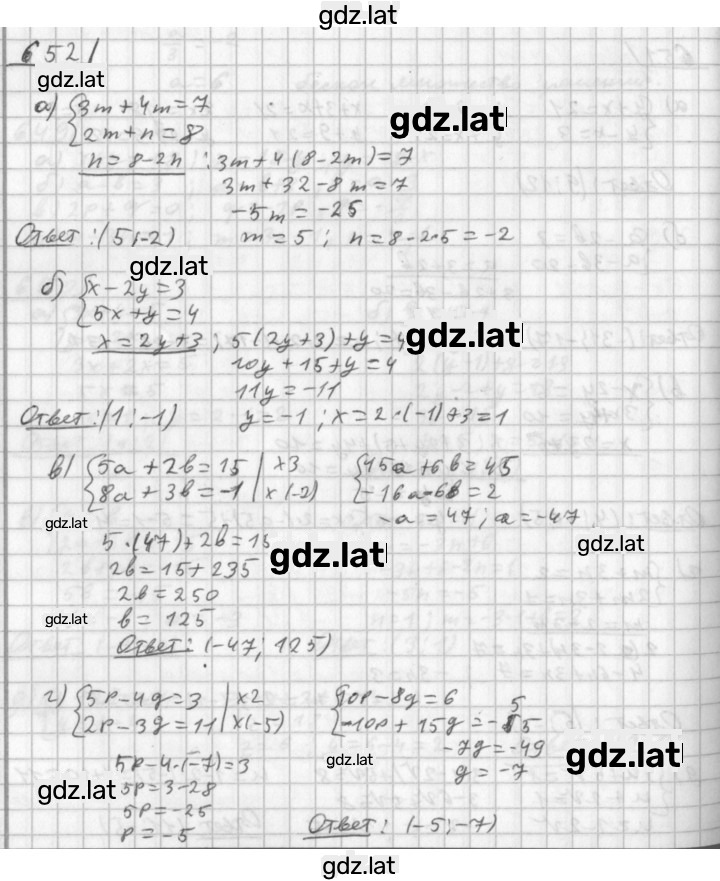 gdz.lat
652/
gdz.lat
а) {3m+4m=7
{2m+n=8
gdz.lat
n=8-2n ; 3m+4(8-2m)=7
3m+32-8m=7
-5m=-25
Ответ: (5;-2) m=5; n=8-2·5=-2
gdz.lat
б) {x-2y=3
{5x+y=4
gdz.lat
x=2y+3; 5(2y+3)+y=4
10y+15+y=4
11y=-11
Ответ: (1;-1) y=-1; x=2·(-1)+3=1
в) {5a+2b=15 | x3 {15a+6b=45
{8a+3b=-1 | x(-2) {-16a-6b=2
-a=47; a=-47
gdz.lat
5·(47)+2b=15
gdz.lat
gdz.lat
2b=15+235
2b=250
gdz.lat
b=125
Ответ: (-47; 125)
г) {5p-4g=3 | x2 {10p-8g=6
{2p-3g=11 | x(-5) {-10p+15g=-55
-7g=-49
5p-4·(-7)=3
gdz.lat
gdz.lat
g=-7
gdz.lat
5p=3-28
5p=-25
p=-5
Ответ: (-5;-7)
gdz.lat